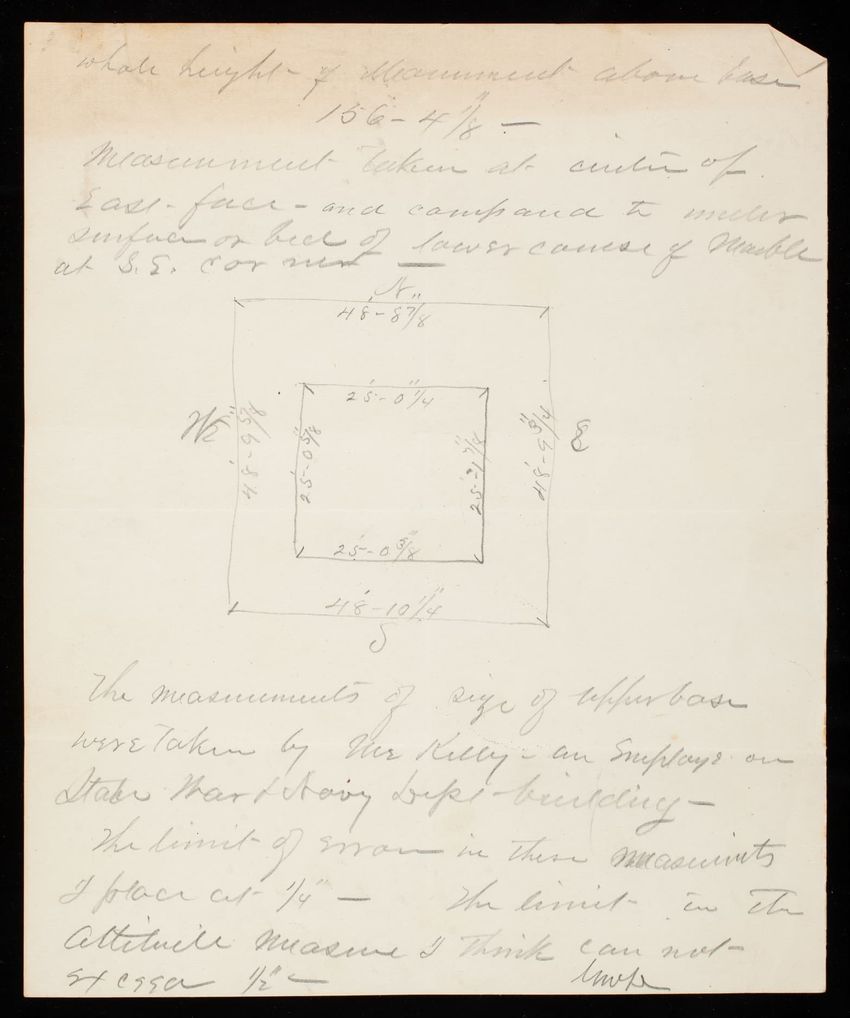 whole height of Monument above base
156'-4 1/8" —
Measurement taken at center of
East-face- and compared to under
surface or bed of lower course of Marble
at S.E. corner —
N
48'-8 7/8"
W
48'-9 5/8"
25'-0 1/4"
25'-0 5/8"
25'-1 1/4"
48'-9 3/4"
E
25'-0 3/8"
48'-10 1/4"
S
The measurements of size of upper base
were taken by Mr Kelly - an Employe on
State War & Navy Dept-building-
The limit of error in these measurments
I place at 1/4" — The limit in the
altitude measure I think can not
exceed 1/2" —